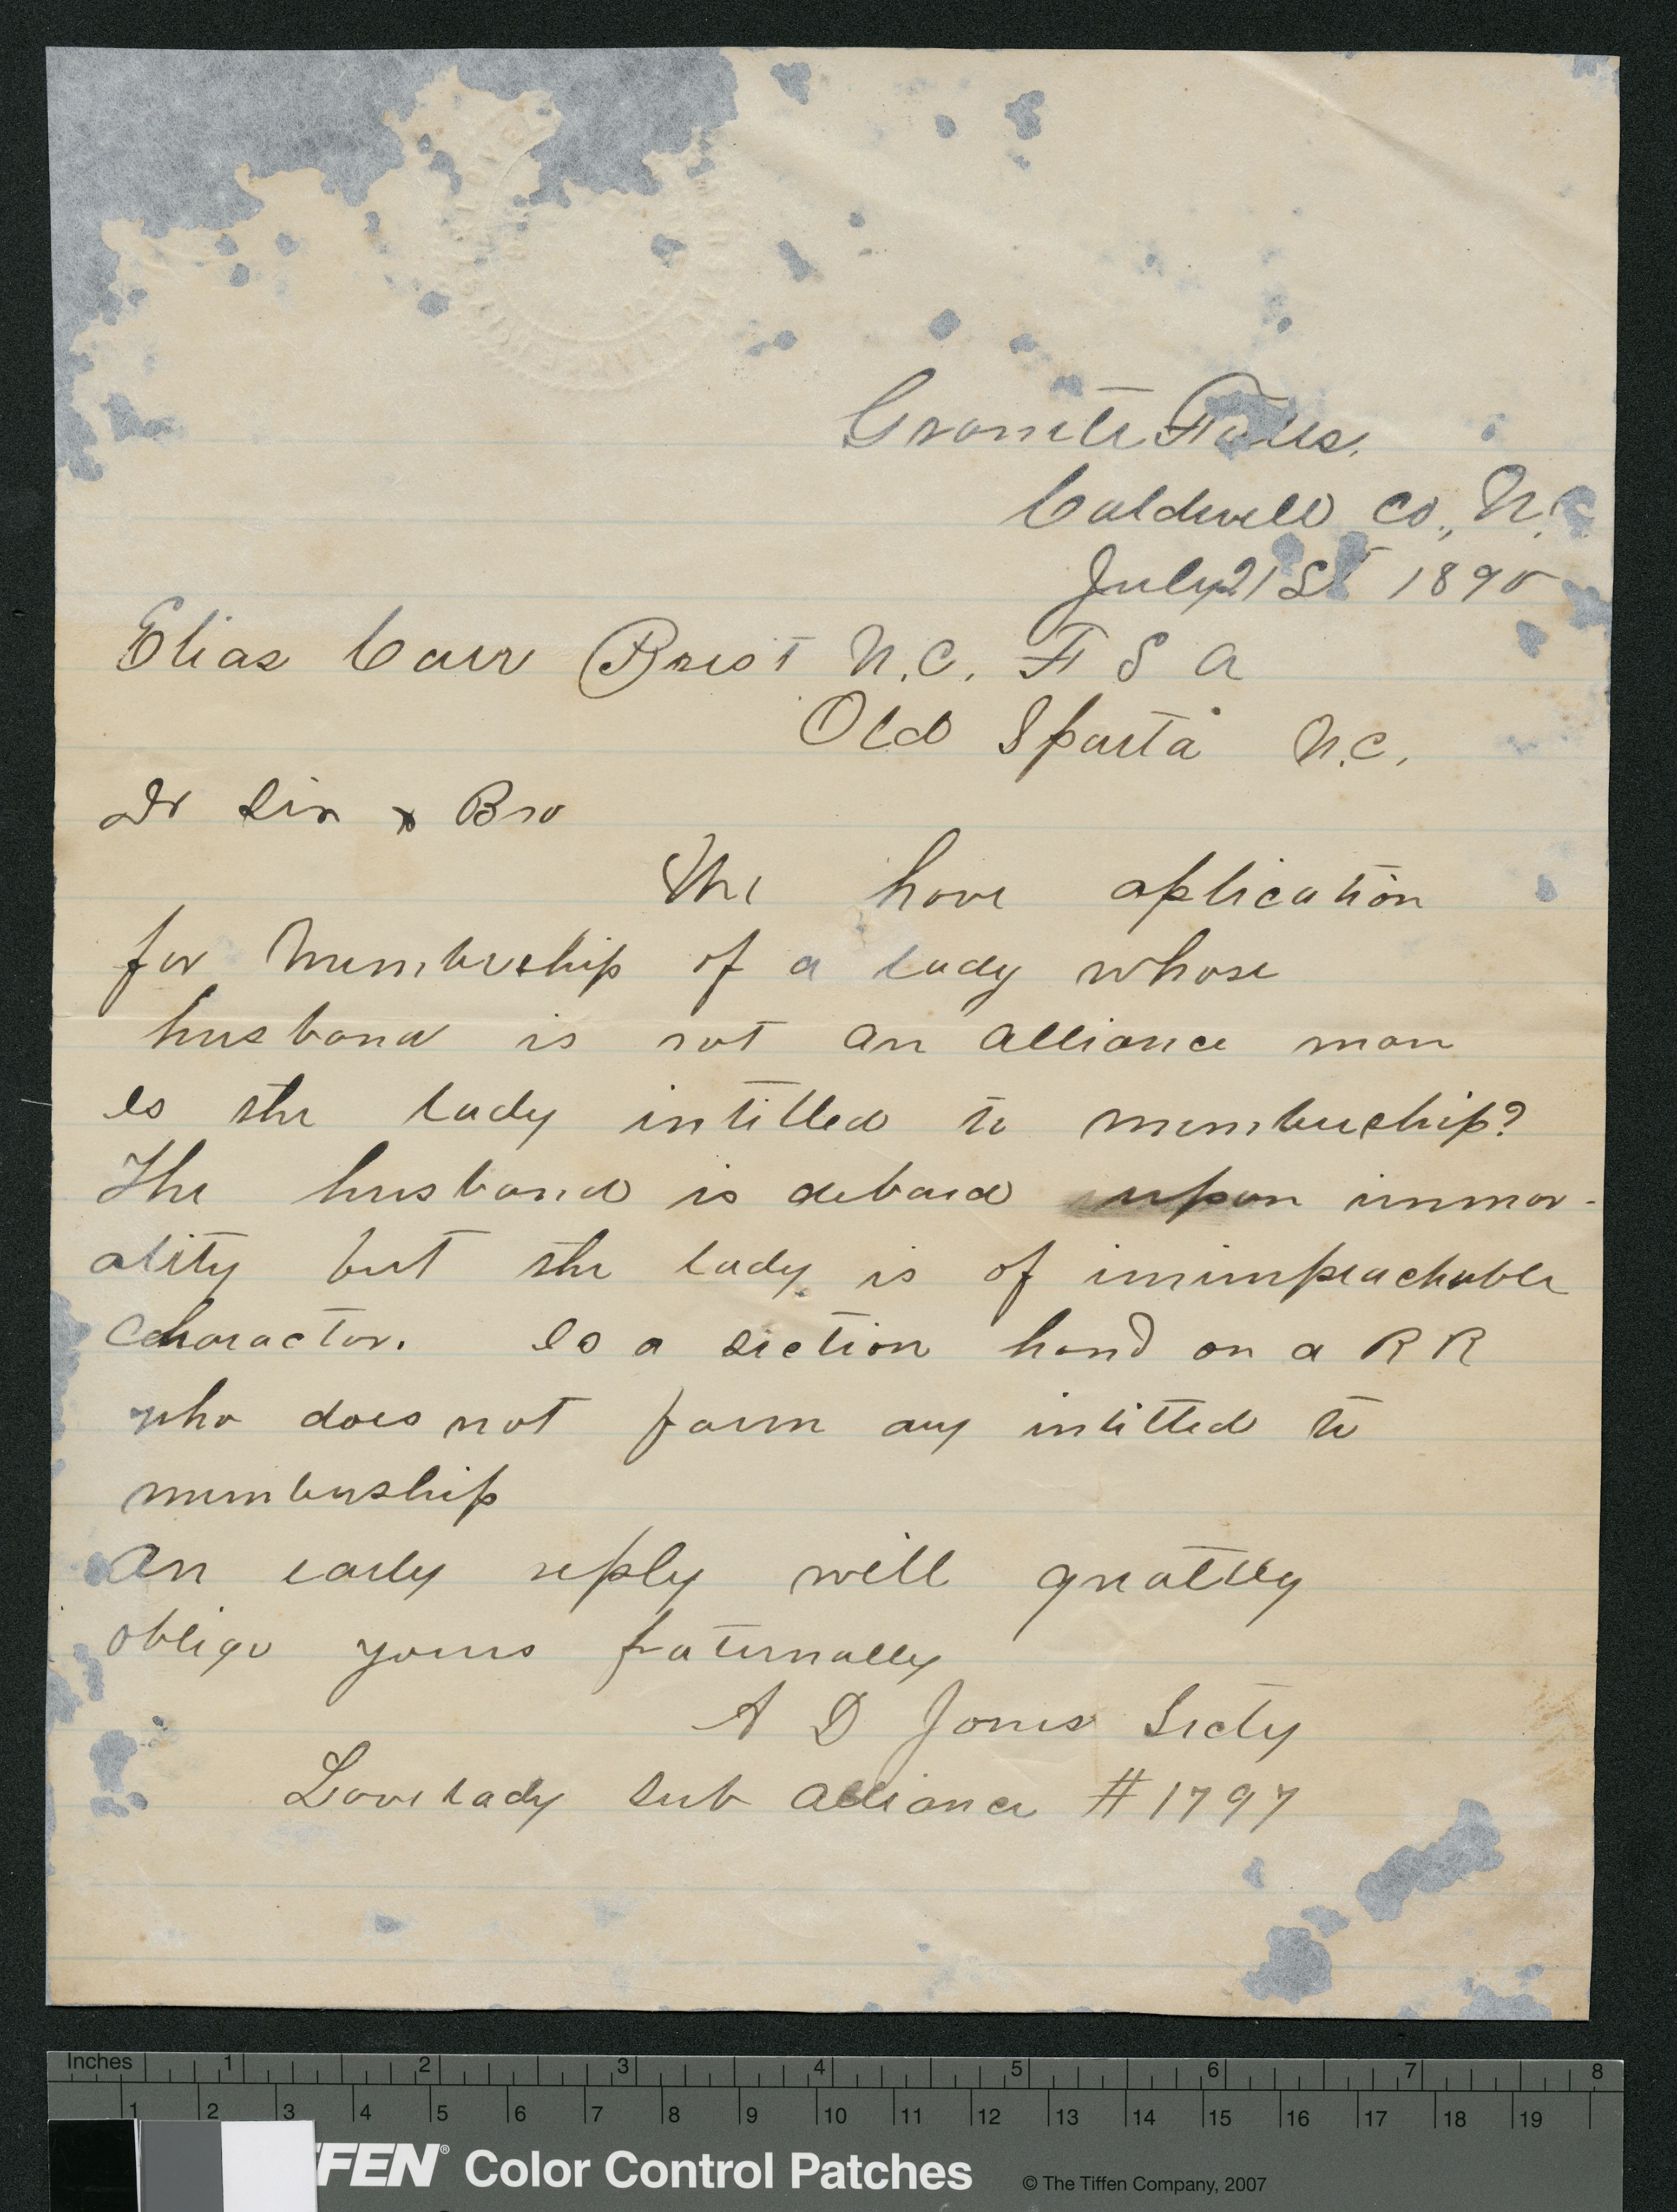 Granite Falls,
Caldwell Co., N.C
July 21st 1890
Elias Carr Prest N.C. F S A
Old Sparta N.C.
Dr Sir & Bro
We have aplication
for Membership of a lady whose
husband is not an alliance man
Is the lady intitled to membership?
The husband is debard upon immor-
ality but the lady is of inimpeachable
Charactor. Is a section hand on a R R
who does not farm any intitled to
membership
An early reply will greattly
oblige yours fraternally
A D Jones Secty
Lovelady Sub Alliance #1797
Inches 1 2 3 4 5 6 7 8
1 2 3 4 5 6 7 8 9 10 11 12 13 14 15 16 17 18 19
FFEN® Color Control Patches © The Tiffen Company, 2007